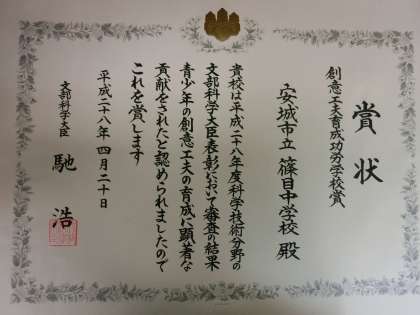 賞状
創意工夫育成功労学校賞
安城市立 篠目中学校 殿
貴校は平成二十八年度科学技術分野の
文部科学大臣表彰において審査の結果
青少年の創意工夫の育成に顕著な
貢献をされたと認められましたので
これを賞します
平成二十八年四月二十日
文部科学大臣 馳 浩